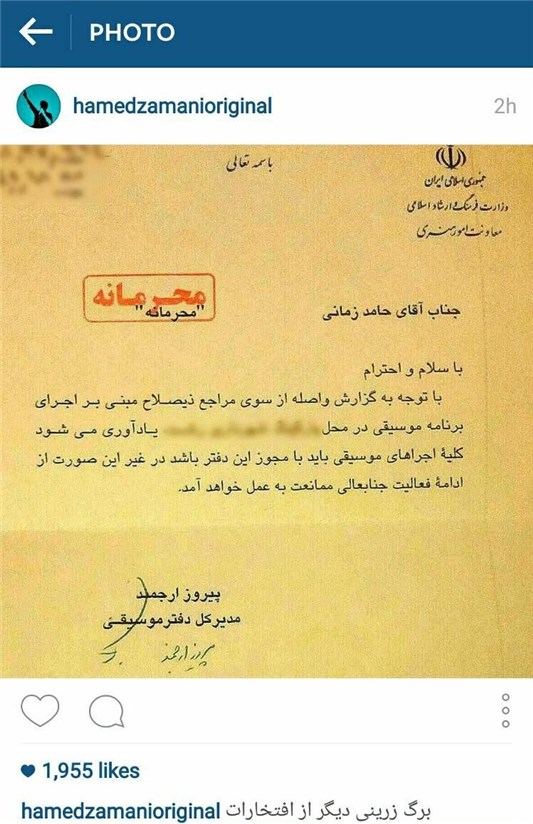 PHOTO
hamedzamanioriginal
2h
باسمه تعالی
جمهوری اسلامی ایران
وزارت فرهنگ و ارشاد اسلامی
معاونت امور هنری
محرمانه
"محرمانه"
جناب آقای حامد زمانی
با سلام و احترام
با توجه به گزارش واصله از سوی مراجع ذیصلاح مبنی بر اجرای
برنامه موسیقی در محل یادآوری می شود
کلیهٔ اجراهای موسیقی باید با مجوز این دفتر باشد در غیر این صورت از
ادامهٔ فعالیت جنابعالی ممانعت به عمل خواهد آمد.
پیروز ارجمند
مدیرکل دفتر موسیقی
پیروز ارجمند
1,955 likes
hamedzamanioriginal برگ زرینی دیگر از افتخارات